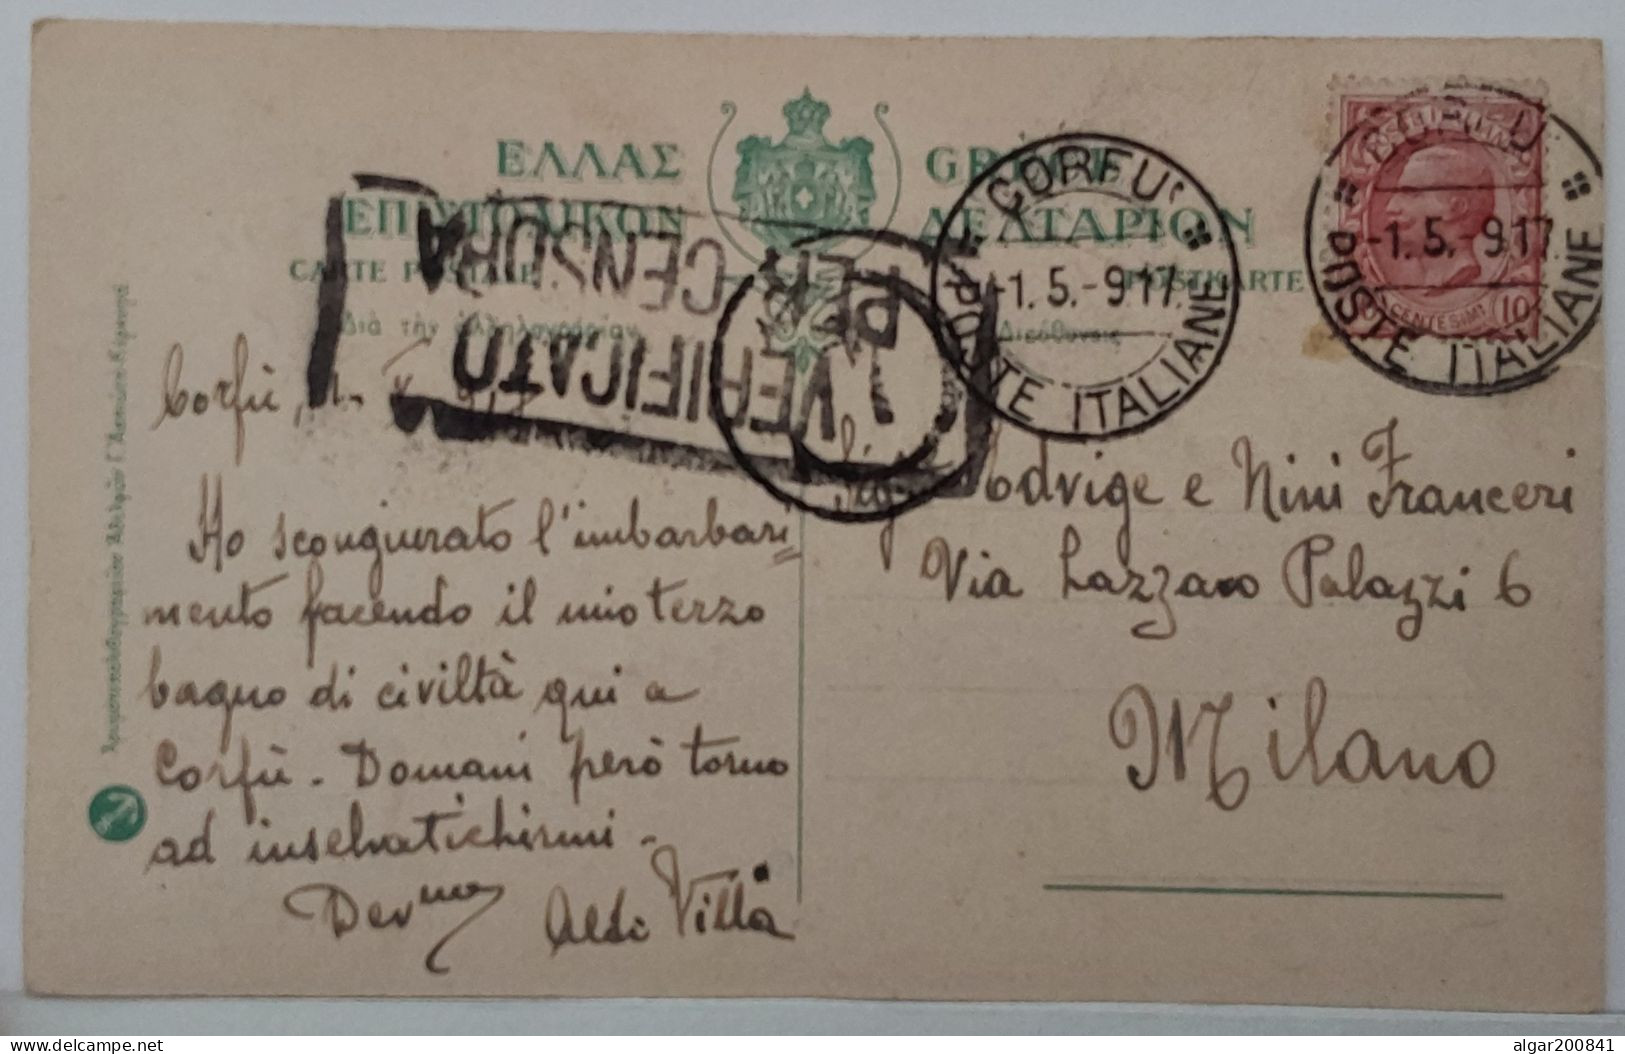 ΕΛΛΑΣ
ΕΠΙΣΤΟΛΙΚΟΝ ΔΕΛΤΑΡΙΟΝ
CARTE POSTALE POSTKARTE
Διὰ τὴν ἀλληλογραφίαν Διεύθυνσις
VERIFICATO
PER CENSURA
CORFU
-1.5.-917.
POSTE ITALIANE
CORFU
-1.5.-917.
POSTE ITALIANE
POSTE ITALIANE
10 CENTESIMI 10
Corfù, 1.
Ho scongiurato l'imbarbari=
mento facendo il mio terzo
bagno di civiltà qui a
Corfù - Domani però torno
ad inselvatichirmi -
Dev.mo Aldi Villa
Sig. Edvige e Nini Franceri
Via Lazzaro Palazzi 6
Milano
algar200841